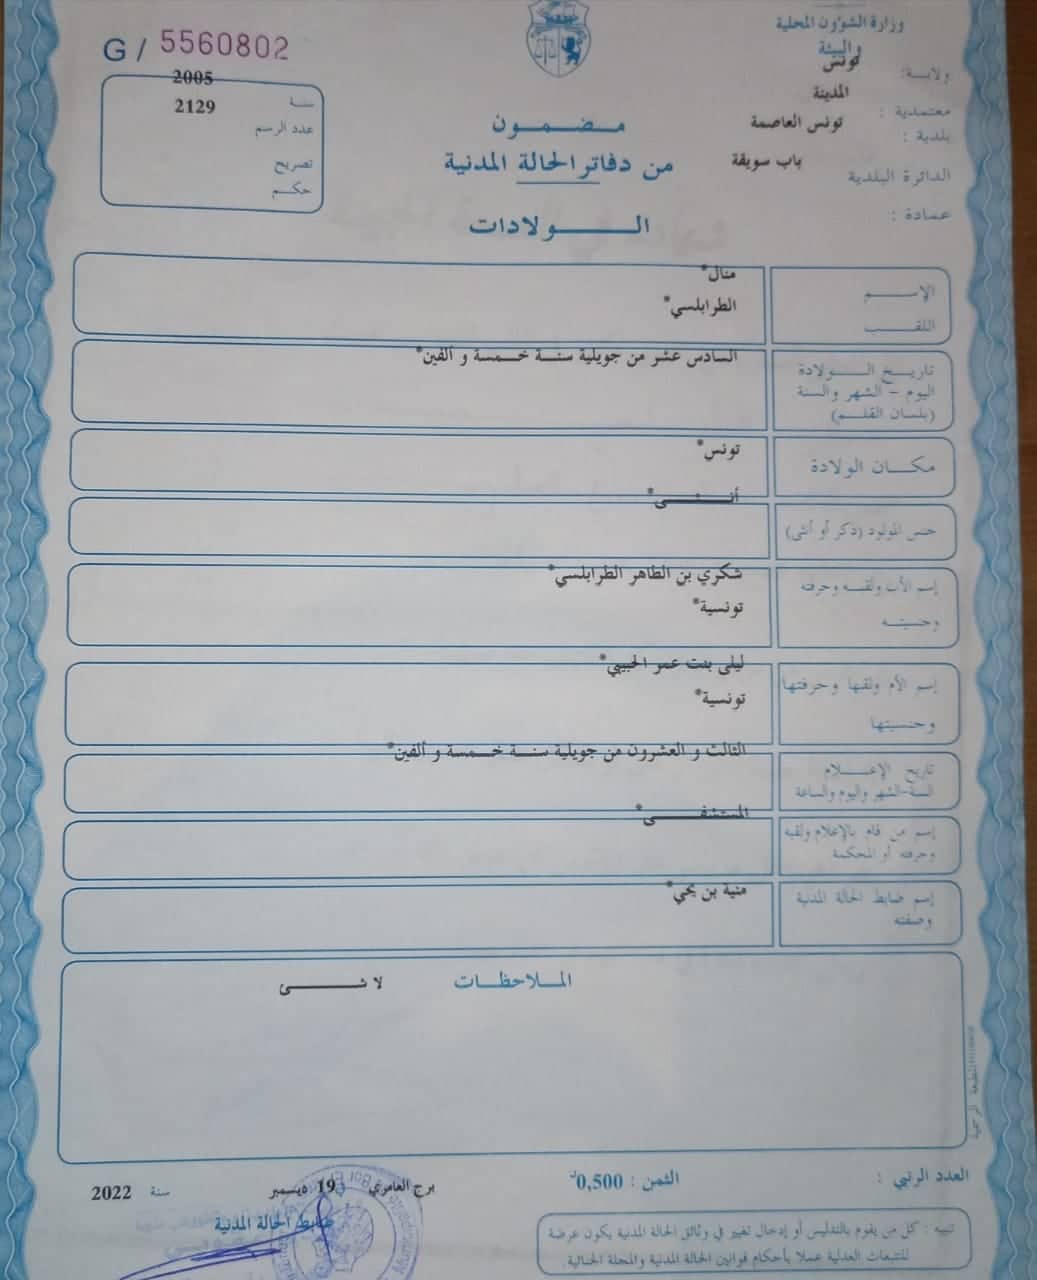 وزارة الشؤون المحلية
والبيئة
ولاية: تونس
معتمدية : المدينة
بلدية : تونس العاصمة
الدائرة البلدية باب سويقة
عمادة :
G / 5560802
سنة 2005
عدد الرسم 2129
تصريح
حكم
مضمون
من دفاتر الحالة المدنية
الولادات
الإسم منال*
اللقب الطرابلسي*
تاريخ الولادة السادس عشر من جويلية سنة خمسة و ألفين*
اليوم - الشهر والسنة
(بلسان القلم)
مكان الولادة تونس*
جنس المولود (ذكر أو أنثى) أنثى*
إسم الأب ولقبه وحرفته شكري بن الطاهر الطرابلسي*
وجنسيته تونسية*
إسم الأم ولقبها وحرفتها ليلى بنت عمر الحبيبي*
وجنسيتها تونسية*
تاريخ الإعلام الثالث و العشرون من جويلية سنة خمسة و ألفين*
السنة-الشهر واليوم والساعة
إسم من قام بالإعلام ولقبه المستشفى*
وحرفته أو المحكمة
إسم ضابط الحالة المدنية منية بن يحي*
وصفته
الملاحظات لا شئ
المطبعة الرسمية
العدد الرتبي :
الثمن : 0,500د
برج العامري في 19 ديسمبر سنة 2022
ضابط الحالة المدنية
تنبيه : كل من يقوم بالتدليس أو إدخال تغيير في وثائق الحالة المدنية يكون عرضة
للتتبعات العدلية عملا بأحكام قوانين الحالة المدنية والمجلة الجنائية.